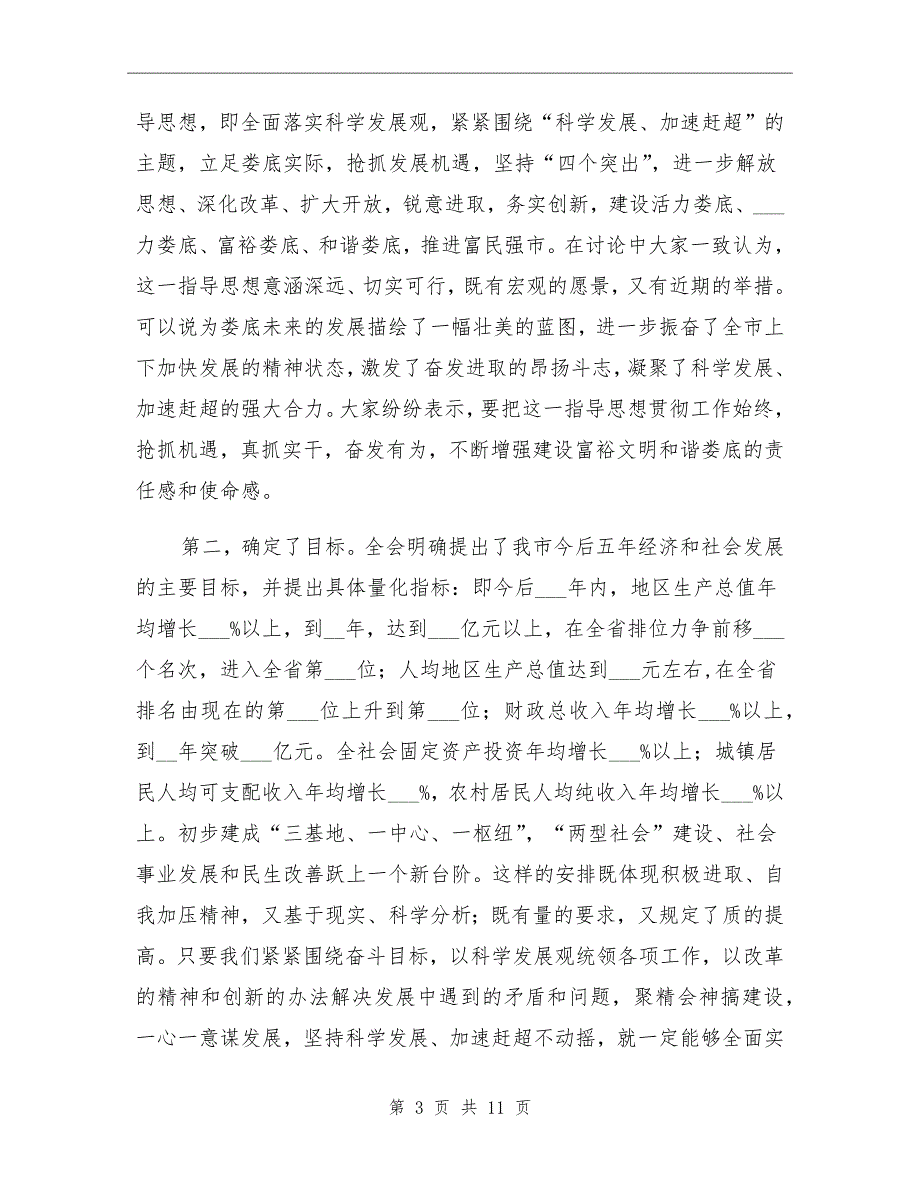 导思想，即全面落实科学发展观，紧紧围绕“科学发展、加速赶超”的
主题，立足娄底实际，抢抓发展机遇，坚持“四个突出”，进一步解放
思想、深化改革、扩大开放，锐意进取，务实创新，建设活力娄底、___
力娄底、富裕娄底、和谐娄底，推进富民强市。在讨论中大家一致认为，
这一指导思想意涵深远、切实可行，既有宏观的愿景，又有近期的举措。
可以说为娄底未来的发展描绘了一幅壮美的蓝图，进一步振奋了全市上
下加快发展的精神状态，激发了奋发进取的昂扬斗志，凝聚了科学发展、
加速赶超的强大合力。大家纷纷表示，要把这一指导思想贯彻工作始终，
抢抓机遇，真抓实干，奋发有为，不断增强建设富裕文明和谐娄底的责
任感和使命感。
第二，确定了目标。全会明确提出了我市今后五年经济和社会发展
的主要目标，并提出具体量化指标：即今后___年内，地区生产总值年
均增长___%以上，到__年，达到___亿元以上，在全省排位力争前移___
个名次，进入全省第___位；人均地区生产总值达到___元左右,在全省
排名由现在的第___位上升到第___位；财政总收入年均增长___%以上，
到__年突破___亿元。全社会固定资产投资年均增长___%以上；城镇居
民人均可支配收入年均增长___%，农村居民人均纯收入年均增长___%以
上。初步建成“三基地、一中心、一枢纽”，“两型社会”建设、社会
事业发展和民生改善跃上一个新台阶。这样的安排既体现积极进取、自
我加压精神，又基于现实、科学分析；既有量的要求，又规定了质的提
高。只要我们紧紧围绕奋斗目标，以科学发展观统领各项工作，以改革
的精神和创新的办法解决发展中遇到的矛盾和问题，聚精会神搞建设，
一心一意谋发展，坚持科学发展、加速赶超不动摇，就一定能够全面实
第 3 页 共 11 页